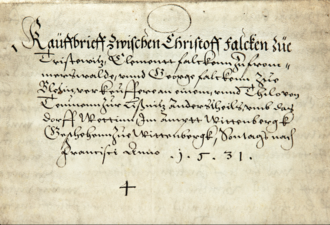 Kauffbrieff zwischen Christoff Falcken zue
Tristewitz, Clement falcken zu from-
merswalde, vnd George falckenn zue
Verkeuffere an einem, vnd Thilo von
Trennow zue Anderstheils, vmb das
dorff Wettin, In ampt Wittenbergk
Geschehenn zue Wittenbergk, Sontags nach
Francisci Anno .1.5.31.